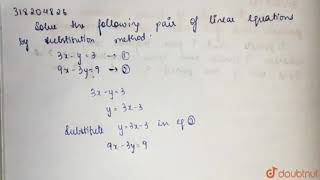 318204826
Solve the following pair of linear equations
by substitution method.
3x-y=3 → ①
9x-3y=9 → ②
3x-y=3
y=3x-3
Substitute y=3x-3 in eq ②
9x-3y=9
doubtnut